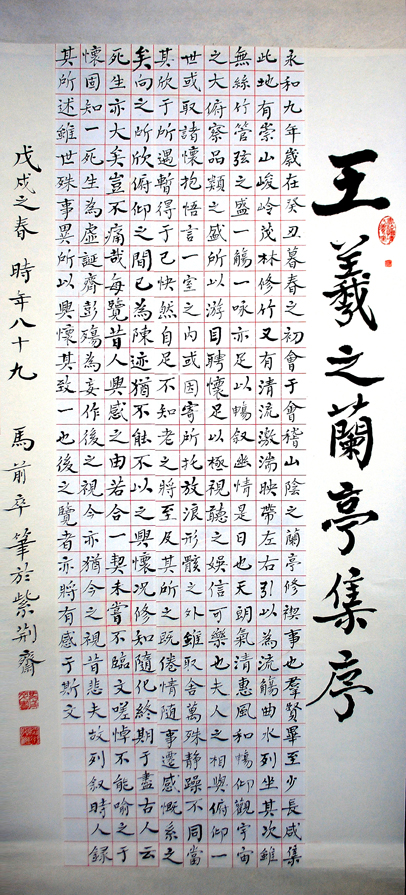 王羲之蘭亭集序
永和九年歲在癸丑暮春之初會于會稽山陰之蘭亭修禊事也羣賢畢至少長咸集
此地有崇山峻岭茂林修竹又有清流激湍映帶左右引以為流觴曲水列坐其次雖
無絲竹管弦之盛一觴一咏亦足以暢叙幽情是日也天朗氣清惠風和暢仰觀宇宙
之大俯察品類之盛所以游目騁懷足以極視聽之娛信可樂也夫人之相與俯仰一
世或取諸懷抱悟言一室之內或因寄所托放浪形骸之外雖取舍萬殊静躁不同當
其欣于所遇暫得于己快然自足不知老之將至及其所之既倦情隨事遷感慨系之
矣向之所欣俯仰之間已為陳迹猶不能不以之興懷况修短隨化終期于盡古人云
死生亦大矣豈不痛哉每覽昔人興感之由若合一契未嘗不臨文嗟悼不能喻之于
懷固知一死生為虛誕齊彭殤為妄作後之視今亦猶今之視昔悲夫故列叙時人録
其所述雖世殊事異所以興懷其致一也後之覽者亦將有感于斯文
戊戌之春 時年八十九 馬前卒筆於紫荆齋